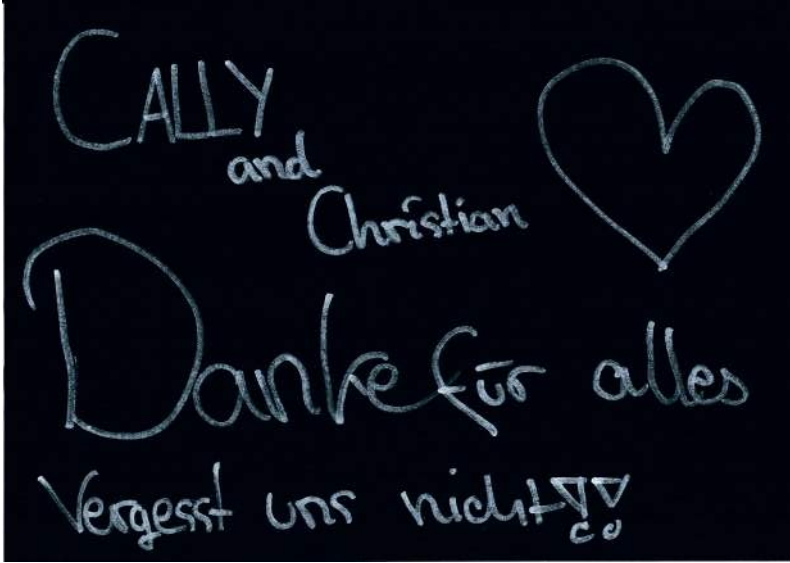 CALLY
and
Christian
Danke für alles
Vergesst uns nicht!!